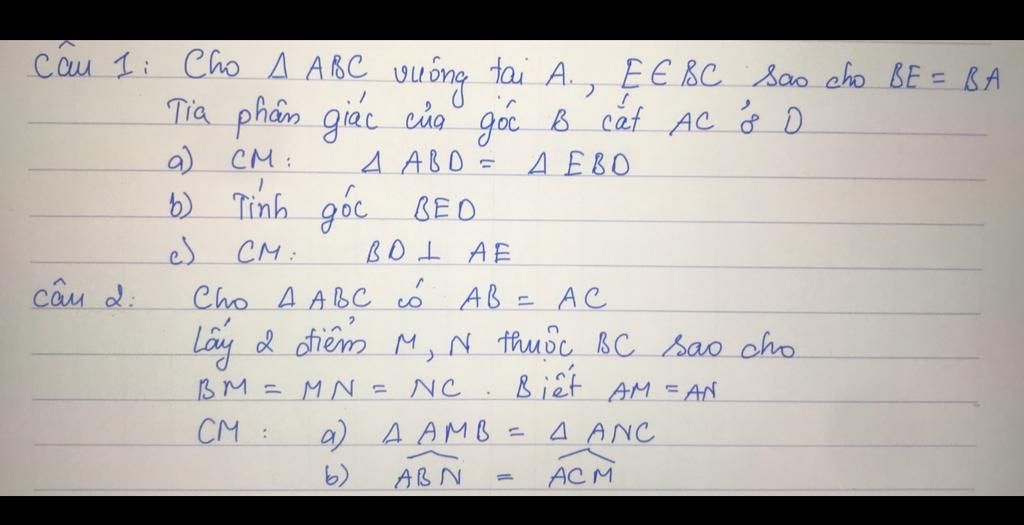 Câu 1: Cho Δ ABC vuông tai A., E ∈ BC sao cho BE = BA
Tia phân giác của góc B cắt AC ở D
a) CM: Δ ABD = Δ EBD
b) Tính góc BED
c) CM: BD ⊥ AE
Câu 2: Cho Δ ABC có AB = AC
Lấy 2 điểm M, N thuộc BC sao cho
BM = MN = NC. Biết AM = AN
CM: a) Δ AMB = Δ ANC
b) \widehat{ABN} = \widehat{ACM}